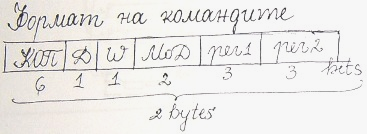 Формат на командите
КОП Д W МоД рег1 рег2
6 1 1 2 3 3 bits
2 bytes